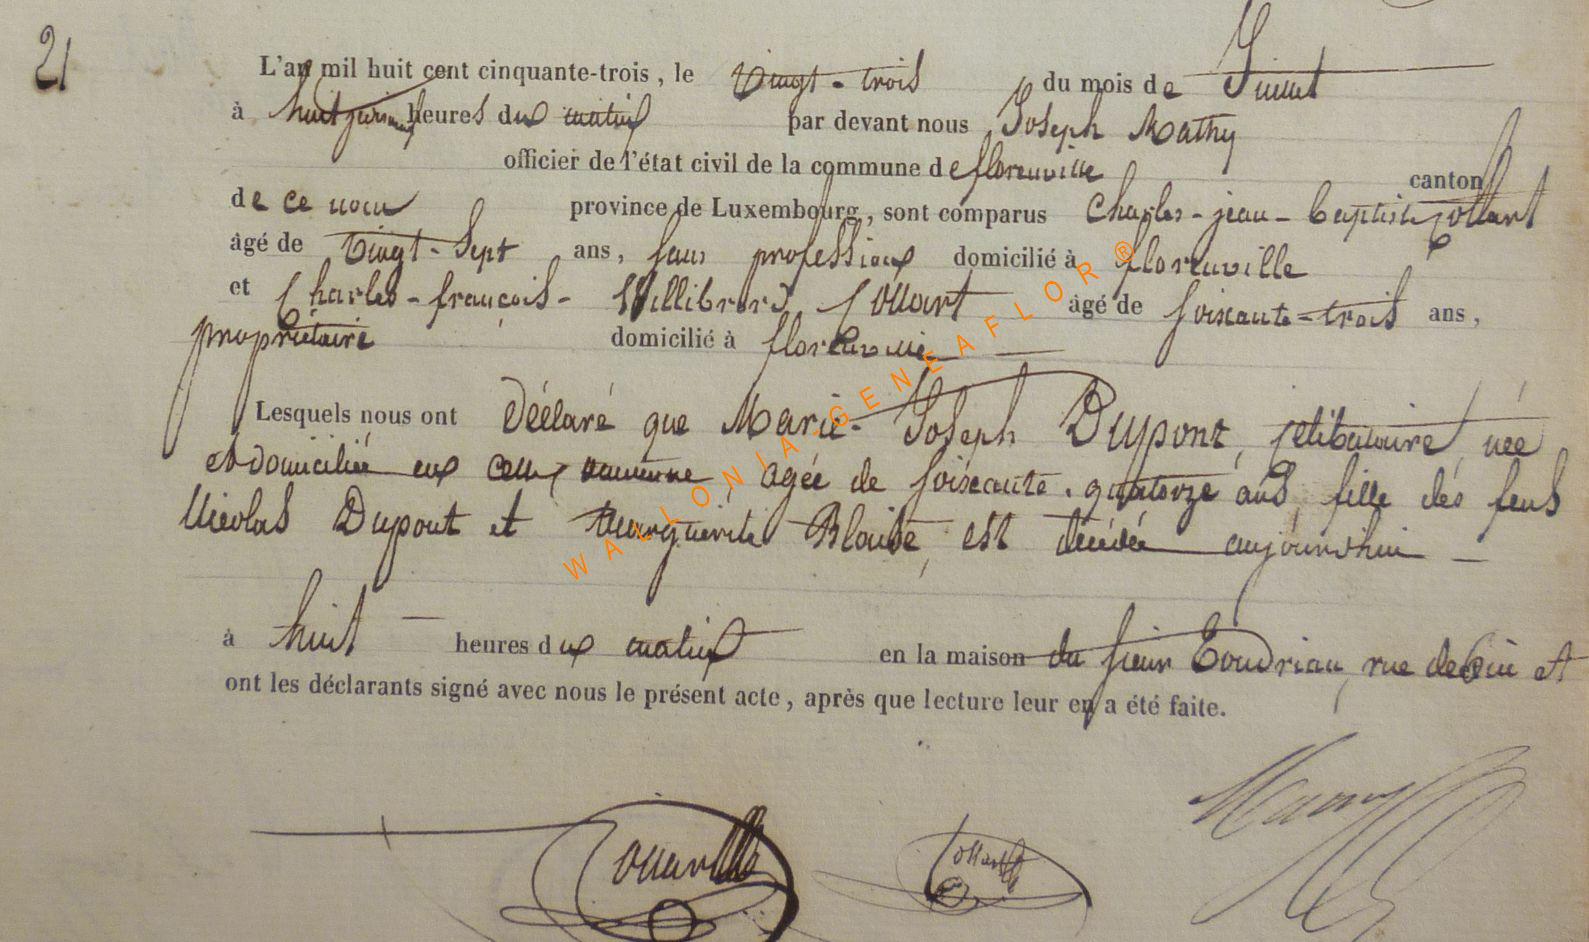 21
L'an mil huit cent cinquante-trois, le vingt-trois du mois de Juillet
à huit heures du matin par devant nous Joseph Mathy
officier de l'état civil de la commune de florenville canton
de ce nom province de Luxembourg, sont comparus Charles-jean-baptiste Collart
âgé de vingt-sept ans, sans profession domicilié à florenville
et Charles-françois-Willibrord Collart âgé de soixante-trois ans,
propriétaire domicilié à florenville
Lesquels nous ont déclaré que Marie-Joseph Dupont, célibataire, née
et domiciliée en cette commune, agée de soixante-quatorze ans, fille des feus
Nicolas Dupont et Marguerite Blaise, est décédée aujourd'hui
à huit heures du matin en la maison du sieur Toudriau, rue de et
ont les déclarants signé avec nous le présent acte, après que lecture leur en a été faite.
Collart Collart Mathy
WALLONIA-GENEAFLOR ®